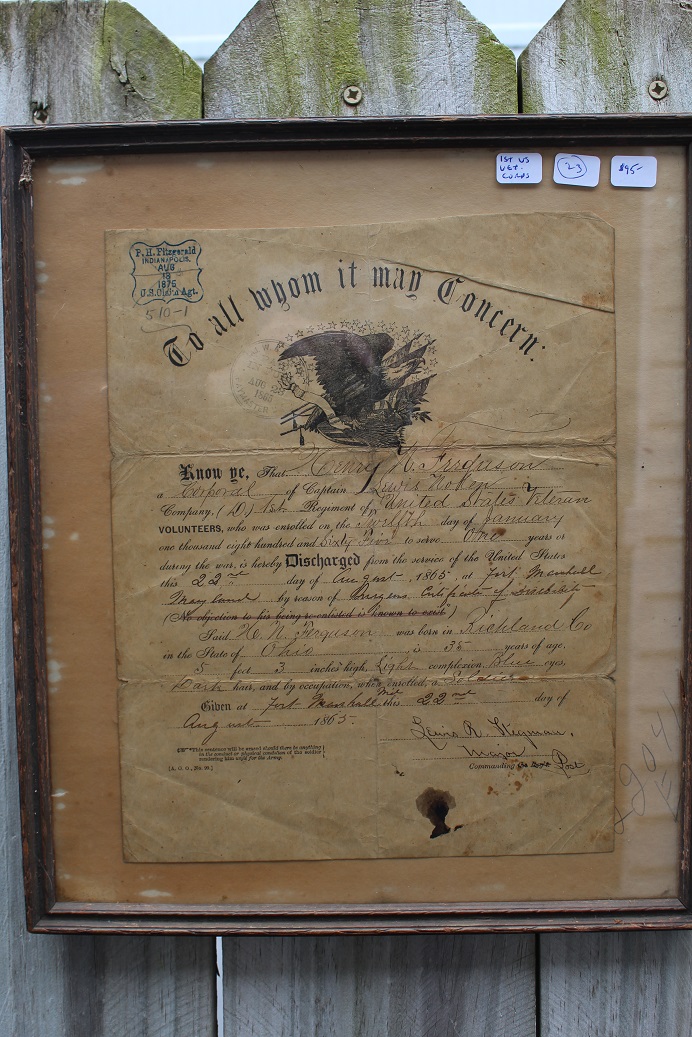 1ST US
VET.
CORPS
23
$95-
P. H. Fitzgerald
INDIANAPOLIS.
AUG
18
1875
U.S. Claim Agt.
510-1
To all whom it may Concern:
AUG
1865
Know ye, That Henry N. Ferguson
a Corporal of Captain Lewis Nolen
Company, (D,) 1st Regiment of United States Veteran
VOLUNTEERS, who was enrolled on the Twelfth day of January
one thousand eight hundred and Sixty Five to serve One years or
during the war, is hereby Discharged from the service of the United States
this 22nd day of August, 1865, at Fort Marshall
Maryland by reason of Surgeons Certificate of Disability
(No objection to his being re-enlisted is known to exist.*)
Said H. N. Ferguson was born in Richland Co
in the State of Ohio is 35 years of age,
5 feet 3 inches high, Light complexion, Blue eyes,
Dark hair, and by occupation, when enrolled, a Soldier
Given at Fort Marshall Md this 22nd day of
August 1865.
Lewis R. Stegman,
Major
Commanding Post
*This sentence will be erased should there be anything
in the conduct or physical condition of the soldier
rendering him unfit for the Army.
[A. G. O., No. 99.]